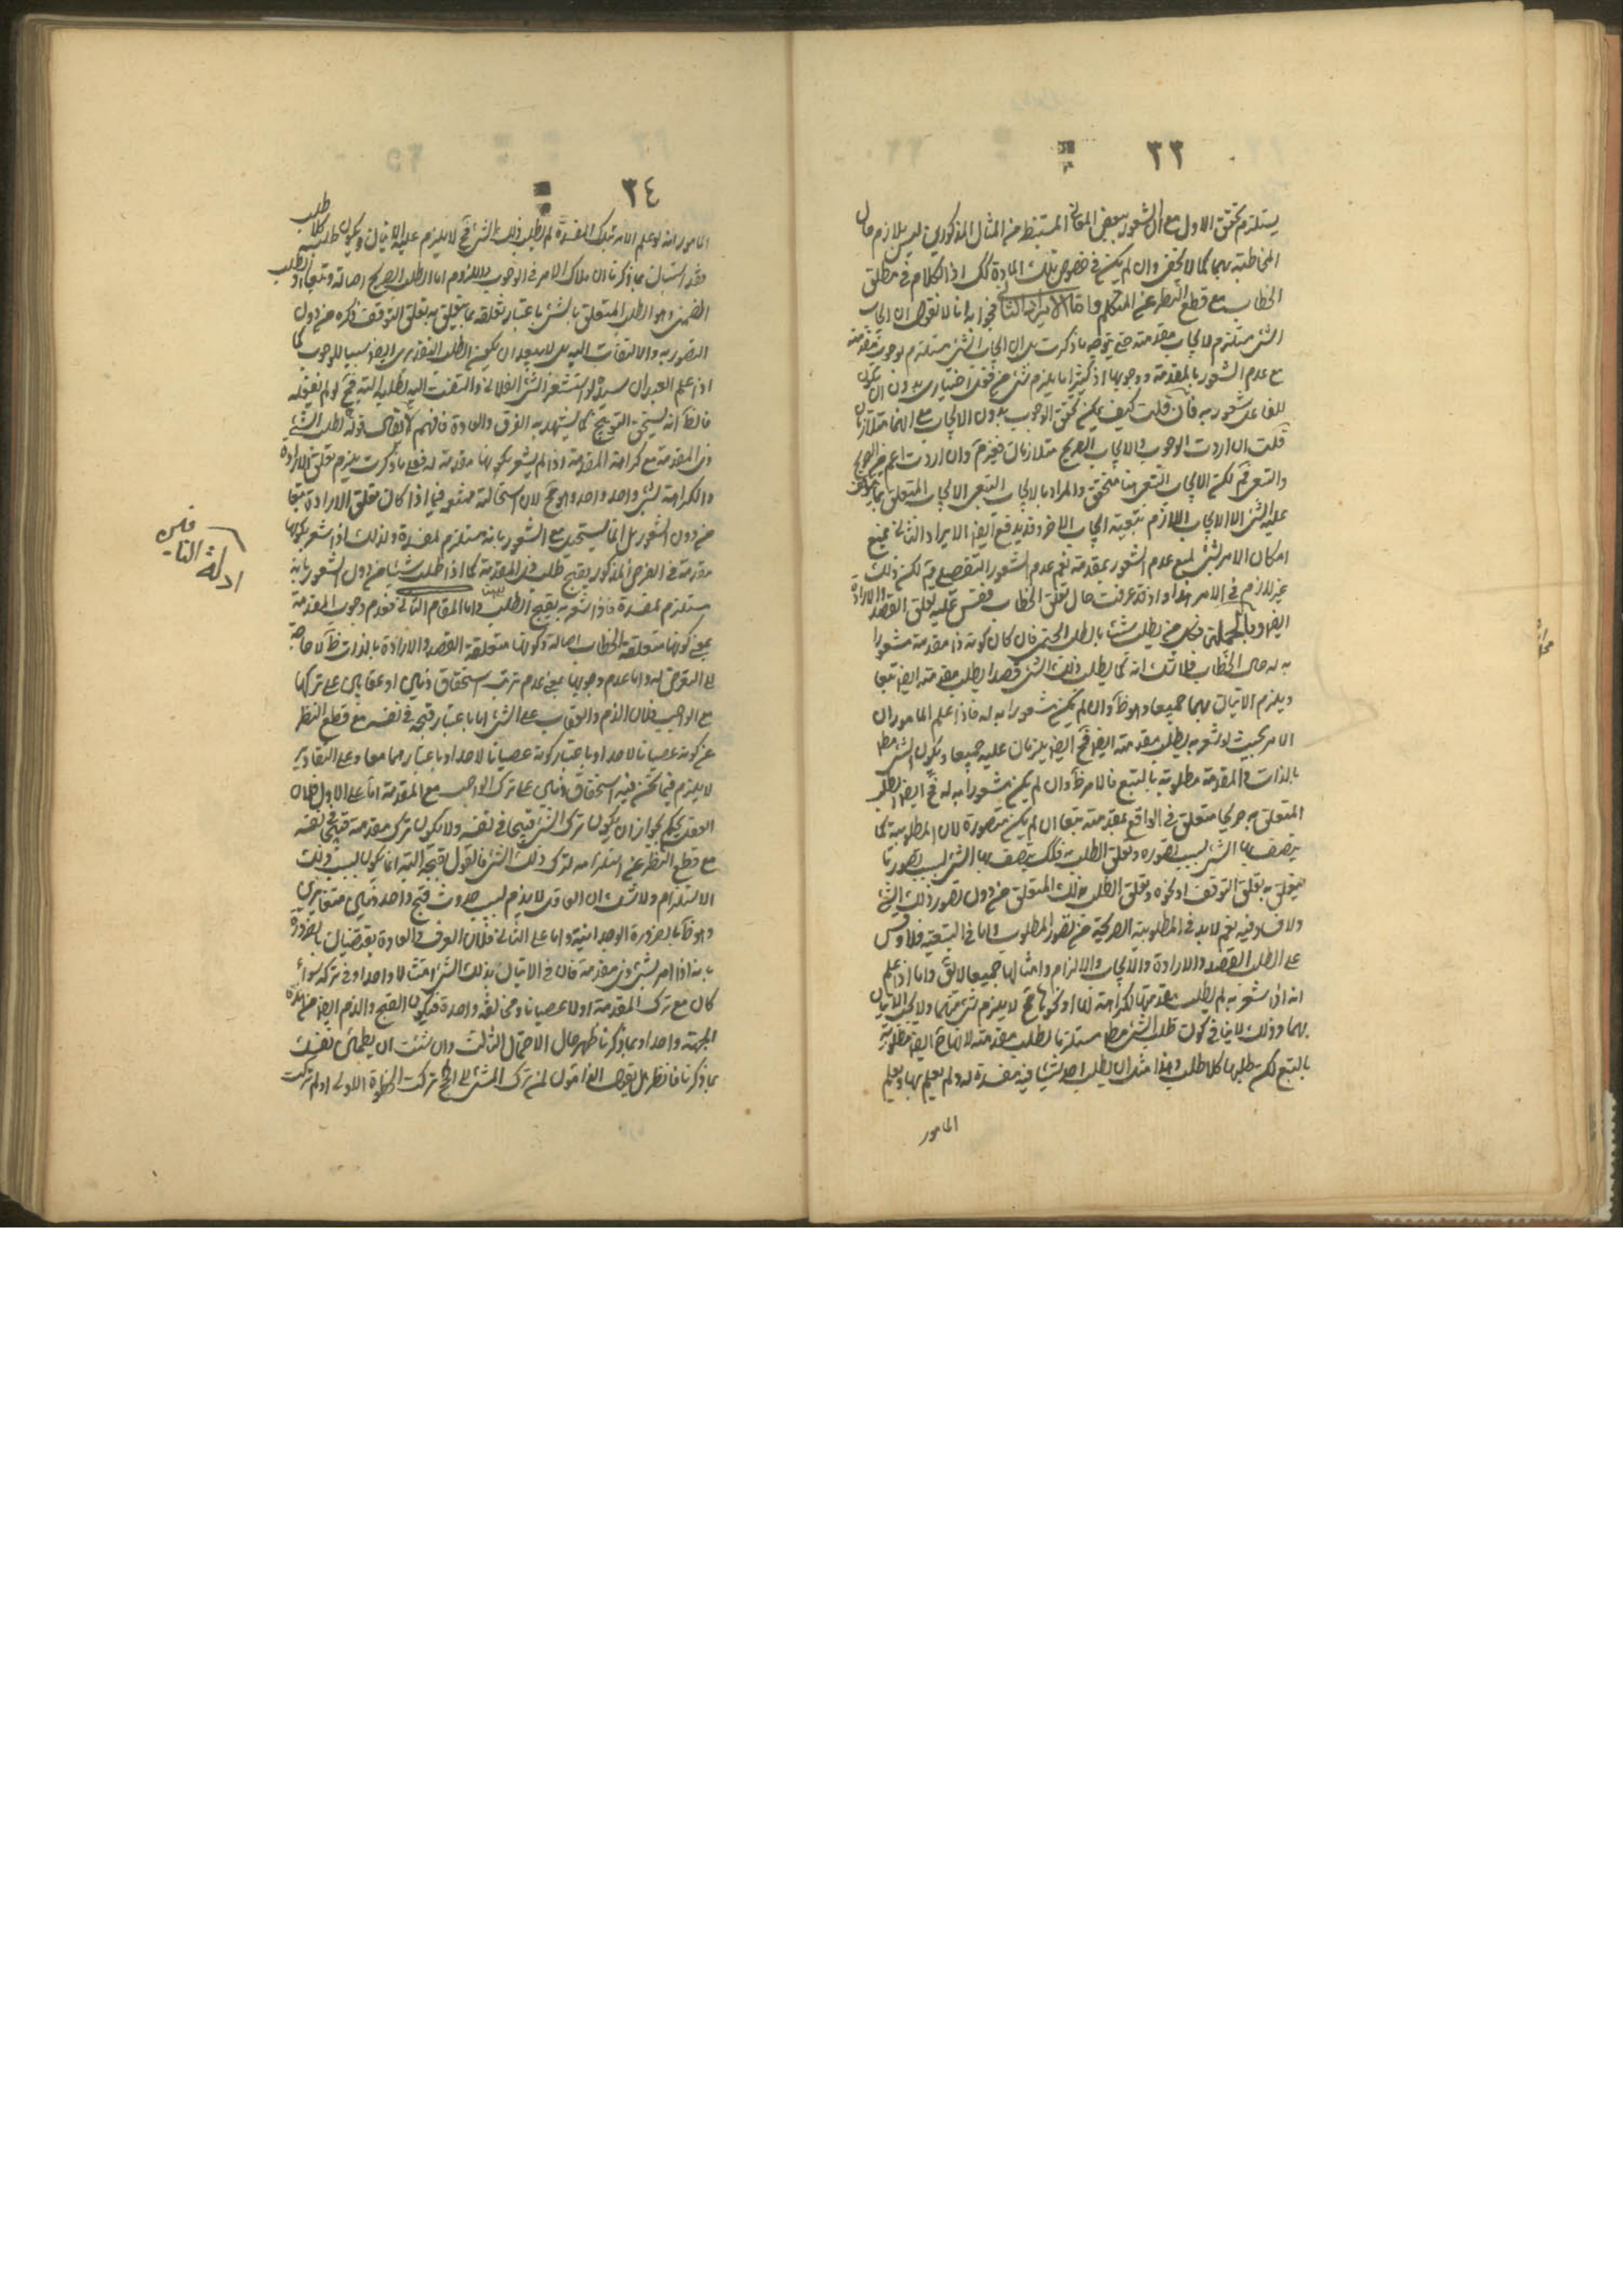 ٣٣
يستلزم تحقق الاول مع ان الشعور ببعض المقدمات المستنبط من المثال المذكور ليس بلازم حال
المخاطبة بهما كما لا يخفى وان لم يكن في خصوص تلك المادة كك اذ الكلام في مطلق
الخطاب مع قطع النظر عن المتكلم واما الايراد الثاني فجوابه انا لا نقول ان ايجاب
الشئ مستلزم لايجاب مقدمته حتى يتوجه ما ذكرت بل ان ايجاب الشئ يستلزم لوجوب مقدمته
مع عدم الشعور بالمقدمة ووجوبها اذ كثيرا ما يلزم شئ من فعل اختياري بدون ان يكون
للفاعل شعور به فان قلت كيف يمكن تحقق الوجوب بدون الايجاب مع انهما متلازمان
قلت ان اردت الوجوب والايجاب الصريح متلازمان فغير م وان اردت اعم من الصريح
والتبعي فم لكن الايجاب التبعي هنا متحقق والمراد بالايجاب التبعي الايجاب المتعلق بما يتوقف
عليه الشئ الا الايجاب اللازم بتبعية ايجاب اخر وقد يدفع ايضا الايراد الثاني بمنع
امكان الامر بشئ مع عدم الشعور بمقدمته نعم عدم الشعور التفصيلي م لكن ذلك
غير لازم في الامر هذا واذ قد عرفت حال تعلق الخطاب فقس عليه تعلق القصد والارادة
ايضا وبالجملة فكل من يطلب شيئا بالطلب الحتمي فان كان كونه ذا مقدمة مشعورا
به له حال الخطاب فلا شك انه كما يطلب ذلك الشئ قصدا يطلب مقدمته ايضا تبعا
ويلزم الاتيان بهما جميعا وهو ظ وان لم يكن مشعورا به له فاذا علم المامور ان
الامر بحيث لو شعر به يطلب مقدمته ايضا فح ايضا يلزمان عليه جميعا ويكون الشئ مط
بالذات والمقدمة مطلوبة بالتبع فالامر ظ وان لم يكن مشعورا به له فح ايضا الطلب
المتعلق به جري متعلق في الواقع بمقدمته تبعا ان لم يكن متصورة لان المطلوبية كما
يتصف بها الشئ بسبب تصوره وتعلق الطلب به فكك يتصف بها الشئ بسبب تصور ما
يتعلق به تعلق التوقف او نحوه وتعلق الطلب بذلك المتعلق من دون تصور ذلك الشئ
ولا فساد فيه نعم لا بد في المطلوبية الصريحة من تصور المطلوب واما في التبعية فلا وقس
على الطلب القصد والارادة والايجاب والالزام وامثالها جميعا لا بق واما اذا علم
انه اذا شعر به لم يطلب مقدمتها لكراهته لها او نحوها فح لا يلزم شئ منهما ولا يجب الاتيان
بهما وذلك لا ينافي كون طلب الشئ مط مستلزما لطلب مقدمته لانها ح ايضا مطلوبة
بالتبع لكن طلبها كلا طلب وهذا مثل ان يطلب احد شيئا فيه مفسدة له ولم يعلم بها ويعلم
المامور
٣٤
المامور انه لو علم الامر بتلك المفسدة لم يطلب ذلك الشئ فح لا يلزم عليه الاتيان ويكون طلبه كلا طلب
وقد استبان بما ذكرنا ان ملاك الامر في الوجوب واللزوم اما الطلب الصريح اصالة وتبعا او الطلب
الضمني وهو الطلب المتعلق بالشئ باعتبار تعلقه بما يتعلق به تعلق التوقف ونحوه من دون
التصور به والالتفات اليه بل لا يبعد ان يكون الطلب التقديري ايضا سببا للوجوب كما
اذا علم العبد ان سيده لو استشعر الشئ الفلاني والتفت اليه لطلبه البتة فح لو لم يفعله
فالظ انه يستحق التوبيخ كما يشهد به العرف والعادة فافهم لا يقال قوله اطلب الشئ
ذي المقدمة مع كراهته المقدمة اذا لم يشعر بكونها مقدمة له فعلى ما ذكرت يلزم تعلق الارادة
والكراهة بشئ واحد واحد وهو مح لان استحالته ممنوعة فيما اذا كان تعلق الارادة تبعا
من دون الشعور بل انما يستحيل مع الشعور بانه مستلزم لمفسدة ولذلك اذا شعر بكونها
مقدمة في الفرض المذكور يقبح طلب ذي المقدمة كما اذا طلب شيئا من دون الشعور بانه
مستلزم لمفسدة فاذا شعر به يقبح الطلب واما المقام الثاني فعدم وجوب المقدمة
بمعنى كونها متعلقة الخطاب اصالة وكونها متعلقة القصد والارادة بالذات ظ لا حاجة
الى التعرض له واما عدم وجوبها بمعنى عدم ترتب استحقاق ذم او عقاب على تركها
مع الواجب فلان الذم والعقاب على الشئ اما باعتبار قبحه في نفسه مع قطع النظر
عن كونه عصيانا لاحد او باعتبار كونه عصيانا لاحد او باعتبارهما معا وعلى التقادير
لا يلزم فيما نحن فيه استحقاق ذم على ترك الواجب مع المقدمة اما على الاول فلان
العقل يحكم بجواز ان يكون ترك الشئ قبيحا في نفسه ولا يكون ترك مقدمته قبيحا في نفسه
مع قطع النظر عن استلزامه لترك ذلك الشئ فالقول بقبحه البتة انما يكون بسبب ذلك
الاستلزام ولا شك ان العاقل لا يذم بسبب حدوث قبح واحد ذمين متغايرين
وهو ظ بالضرورة الوجدانية واما على الثاني فلان العرف والعادة يقتضيان بالضرورة
بانه اذا امر بشئ ذي مقدمة فان في الاتيان بذلك الشئ امتثالا واحدا وفي تركه سواء
كان مع ترك المقدمة او لا عصيانا ومخالفة واحدة فيكون القبح والذم ايضا من هذه
الجهة واحدا وبما ذكرنا ظهر حال الاحتمال الثالث وان شئت ان يطمئن نفسك
بما ذكرنا فانظر هل يقول العاقلون لمن ترك المشي الى الحج تركت الخطوة الاولى او لم تركت
ادلة النافين